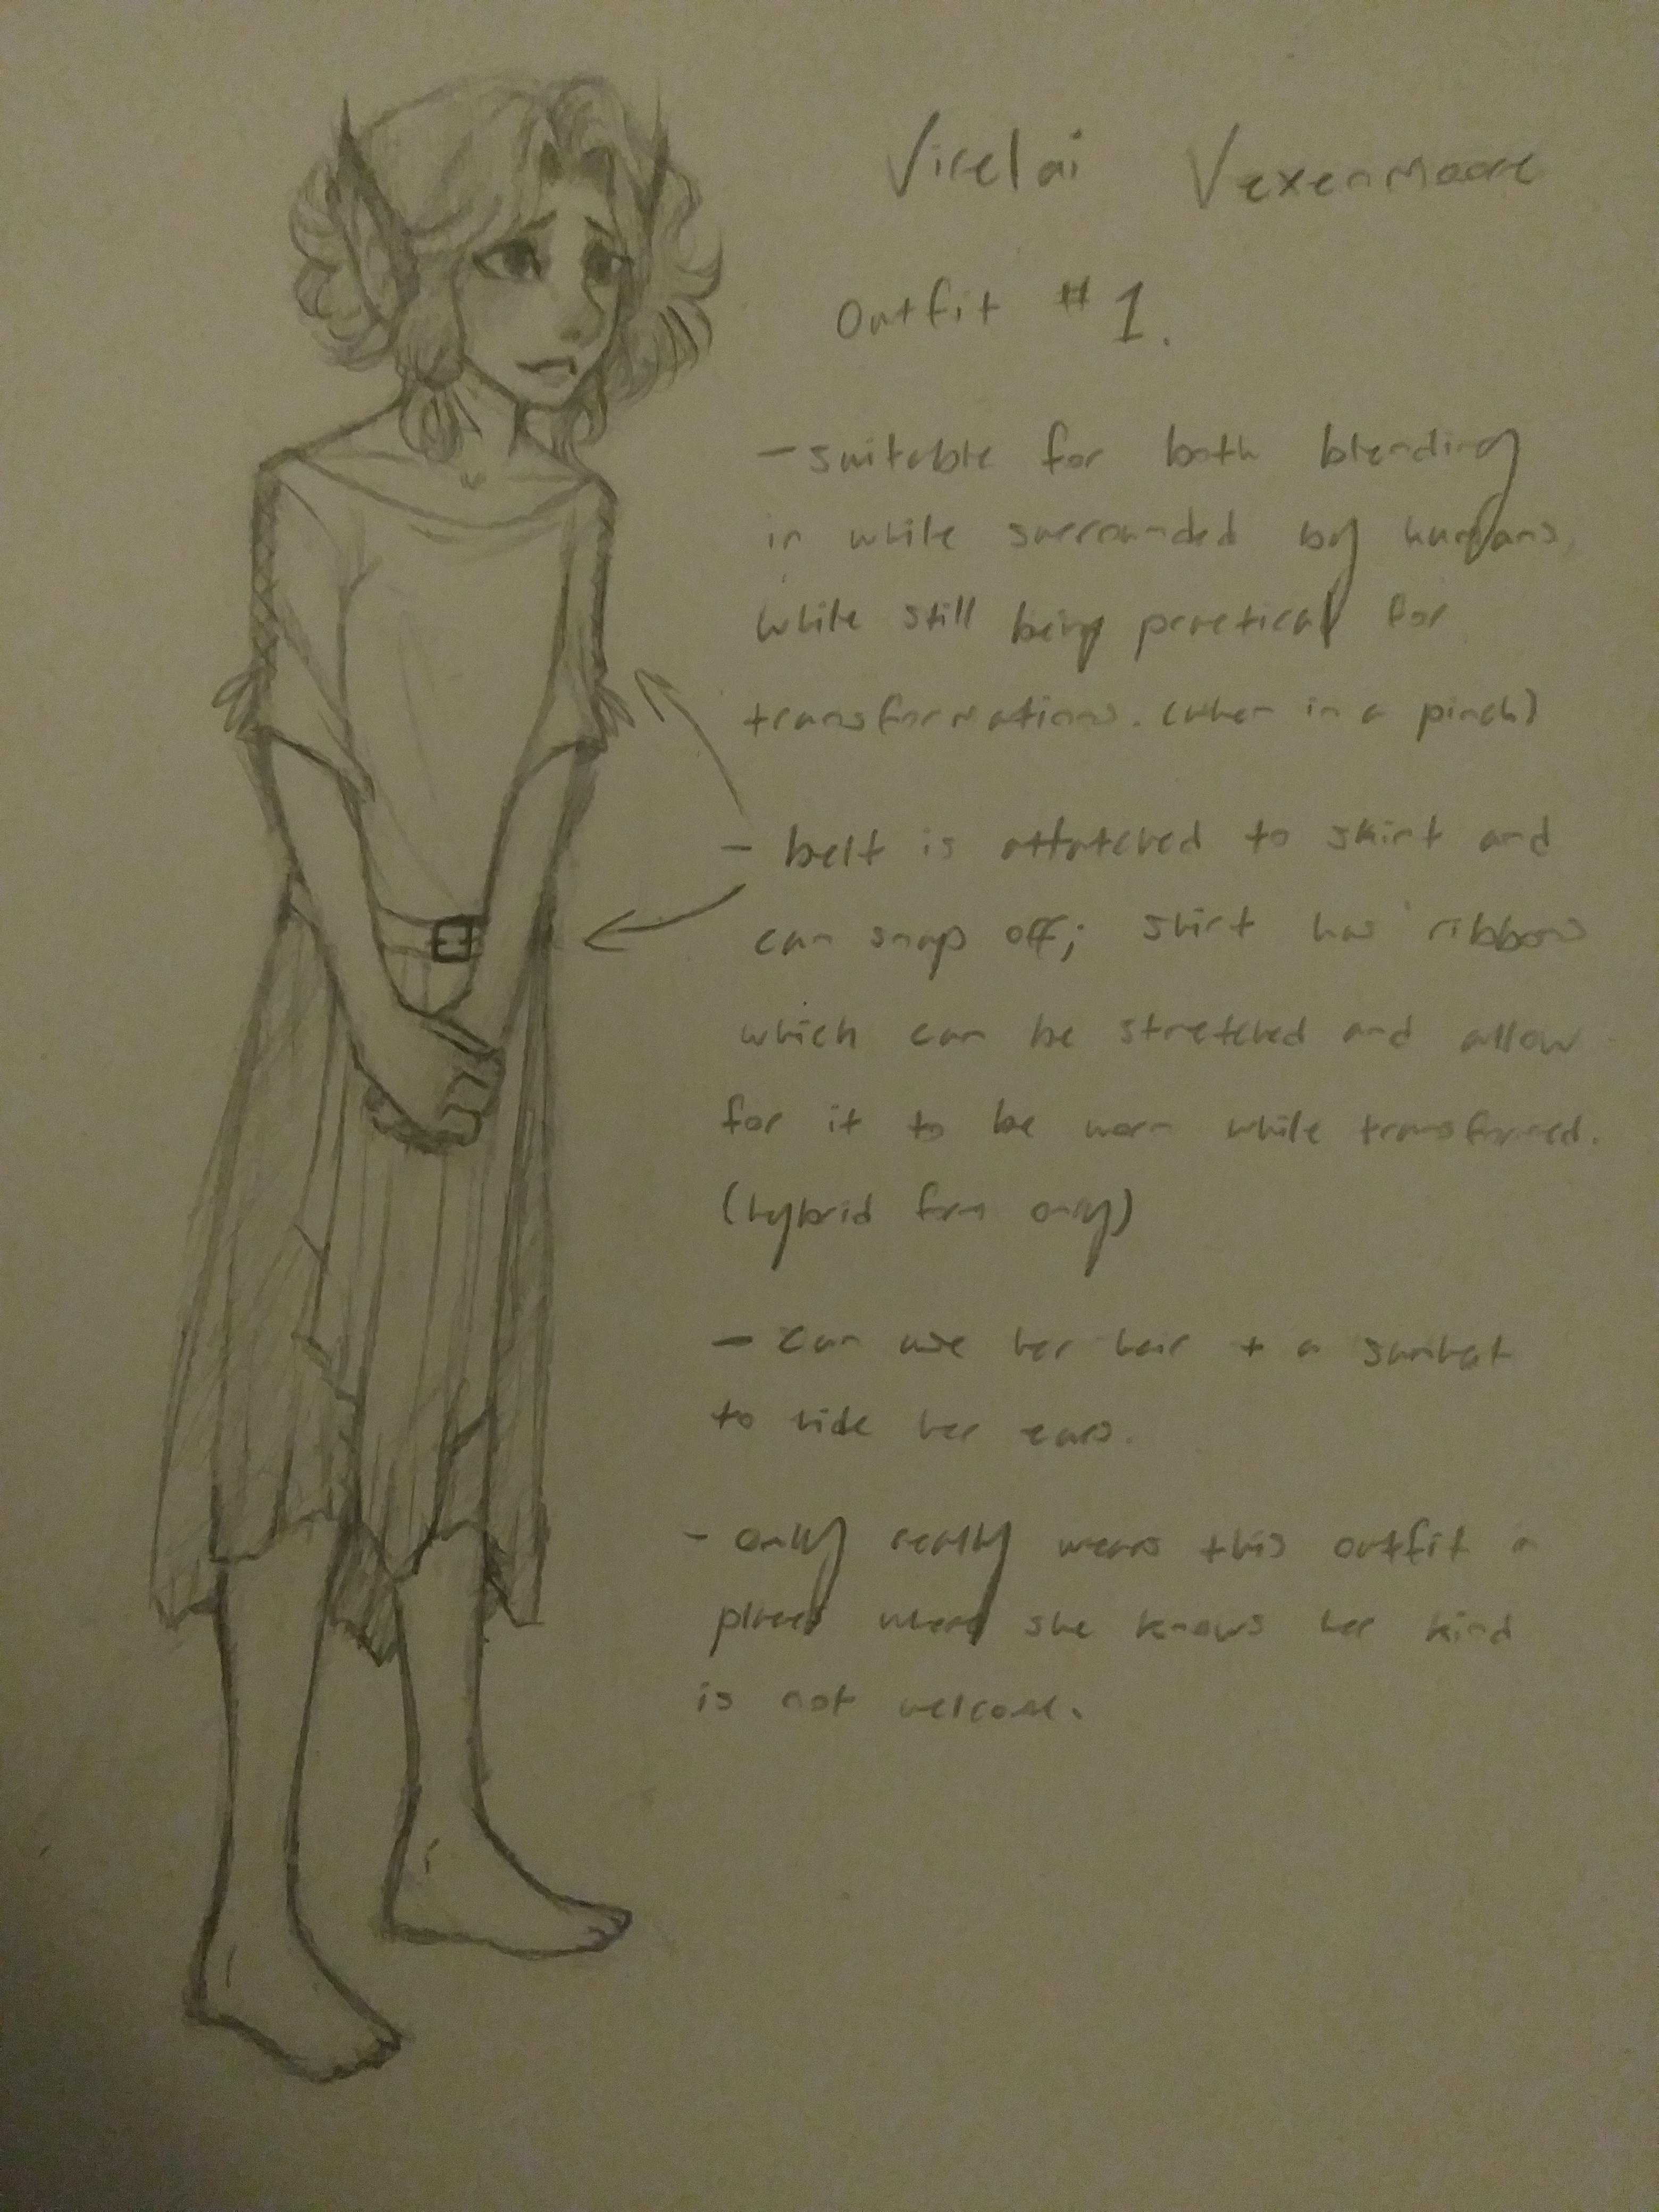 Virelai Vexenmoore
Outfit #1.
- suitable for both blending
in while surrounded by humans
while still being practical for
transformations. (when in a pinch)
- belt is attatched to skirt and
can snap off; shirt has ribbons
which can be stretched and allow
for it to be worn while transformed.
(hybrid form only)
- can use her hair + a sunhat
to hide her ears.
- only really wears this outfit in
places where she knows her kind
is not welcome.